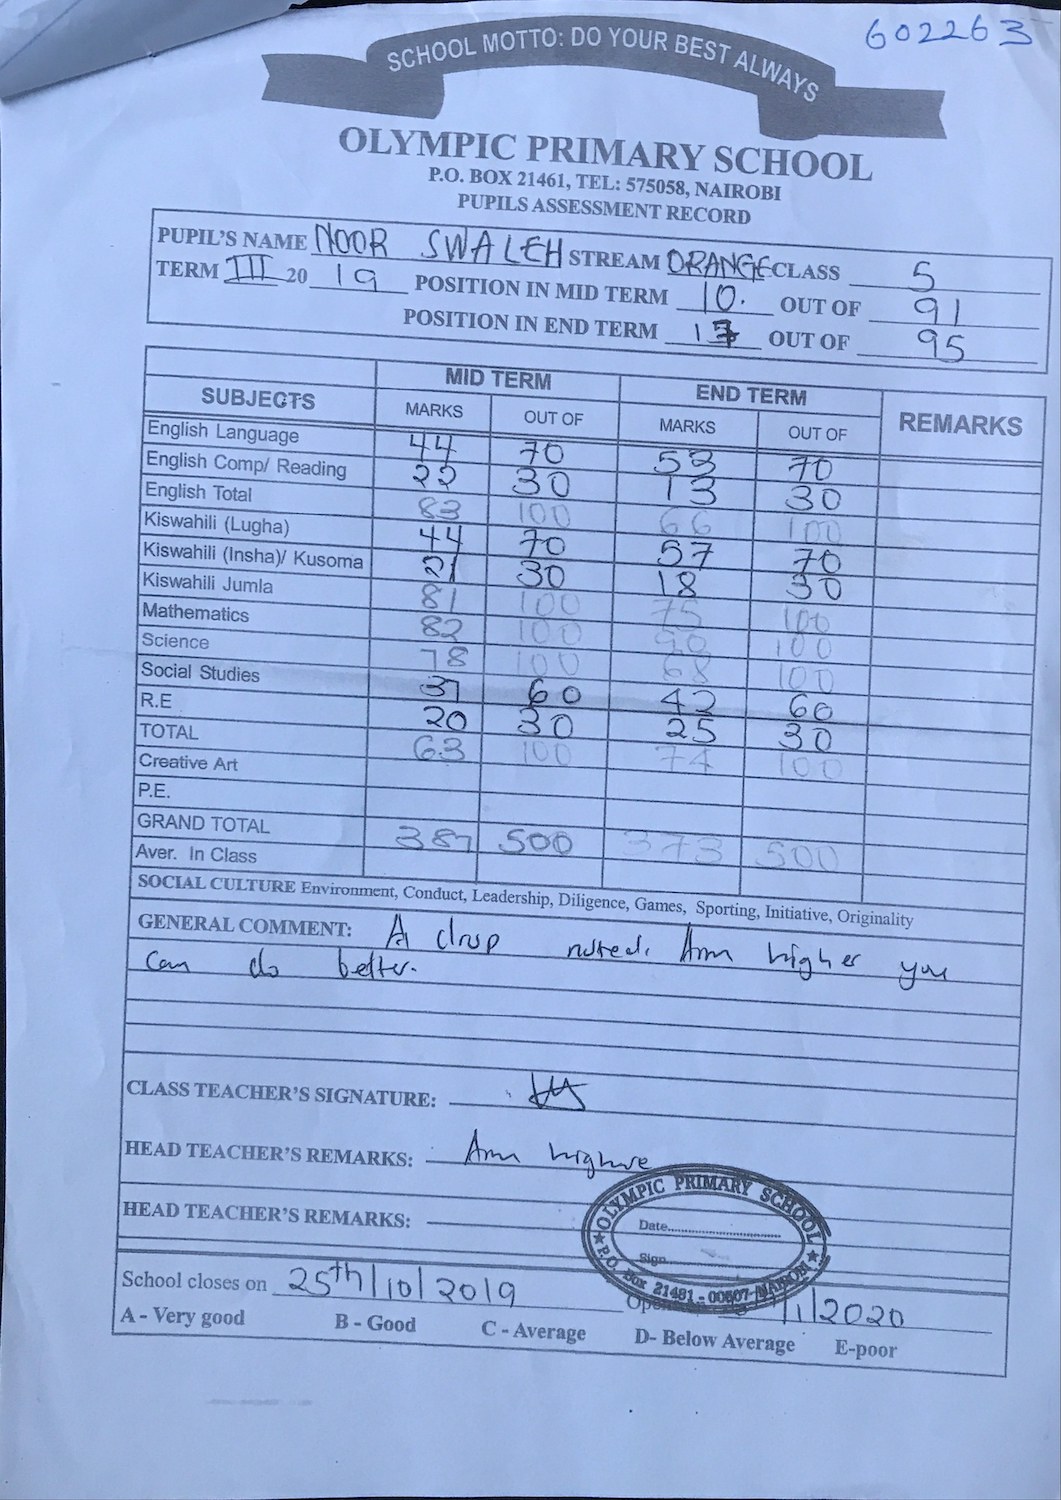 602263
SCHOOL MOTTO: DO YOUR BEST ALWAYS
OLYMPIC PRIMARY SCHOOL
P.O. BOX 21461, TEL: 575058, NAIROBI
PUPILS ASSESSMENT RECORD
PUPIL'S NAME NOOR SWALEH STREAM ORANGE CLASS 5
TERM III 20 19 POSITION IN MID TERM 10. OUT OF 91
POSITION IN END TERM 17 OUT OF 95
MID TERM END TERM
SUBJECTS MARKS OUT OF MARKS OUT OF REMARKS
English Language 44 70 53 70
English Comp/ Reading 22 30 13 30
English Total 83 100 66 100
Kiswahili (Lugha) 44 70 57 70
Kiswahili (Insha)/ Kusoma 21 30 18 30
Kiswahili Jumla 81 100 75 100
Mathematics 82 100 90 100
Science 78 100 68 100
Social Studies 37 60 42 60
R.E 20 30 25 30
TOTAL 63 100 74 100
Creative Art
P.E.
GRAND TOTAL 387 500 373 500
Aver. In Class
SOCIAL CULTURE Environment, Conduct, Leadership, Diligence, Games, Sporting, Initiative, Originality
GENERAL COMMENT: A drop noted. Aim higher you
can do better.
CLASS TEACHER'S SIGNATURE:
HEAD TEACHER'S REMARKS: Aim higher
HEAD TEACHER'S REMARKS:
OLYMPIC PRIMARY SCHOOL
Date
Sign
P.O. Box 21481 - 00607 - NAIROBI
School closes on 25th/10/2019 /1/2020
A - Very good B - Good C - Average D- Below Average E-poor